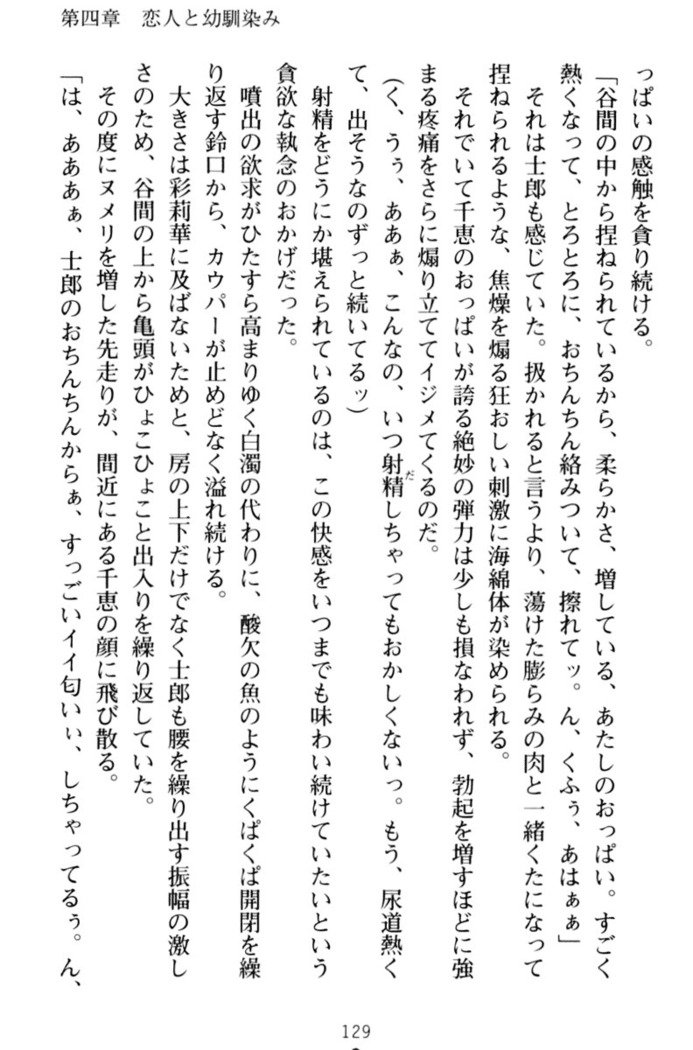 第四章　恋人と幼馴染み
っぱいの感触を貪り続ける。
「谷間の中から捏ねられているから、柔らかさ、増している、あたしのおっぱい。すごく
熱くなって、とろとろに、おちんちん絡みついて、擦れてッ。ん、くふぅ、あはぁぁ」
　それは士郎も感じていた。扱かれると言うより、蕩けた膨らみの肉と一緒くたになって
捏ねられるような、焦燥を煽る狂おしい刺激に海綿体が染められる。
　それでいて千恵のおっぱいが誇る絶妙の弾力は少しも損なわれず、勃起を増すほどに強
まる疼痛をさらに煽り立ててイジメてくるのだ。
（く、うぅ、ああぁ、こんなの、いつ射精しちゃってもおかしくないっ。もう、尿道熱く
だ
て、出そうなのずっと続いてるッ）
　射精をどうにか堪えられているのは、この快感をいつまでも味わい続けていたいという
貪欲な執念のおかげだった。
　噴出の欲求がひたすら高まりゆく白濁の代わりに、酸欠の魚のようにくぱくぱ開閉を繰
り返す鈴口から、カウパーが止めどなく溢れ続ける。
　大きさは彩莉華に及ばないためと、房の上下だけでなく士郎も腰を繰り出す振幅の激し
さのため、谷間の上から亀頭がひょこひょこと出入りを繰り返していた。
　その度にヌメリを増した先走りが、間近にある千恵の顔に飛び散る。
「は、あああぁ、士郎のおちんちんからぁ、すっごいイイ匂いぃ、しちゃってるぅ。ん、
129